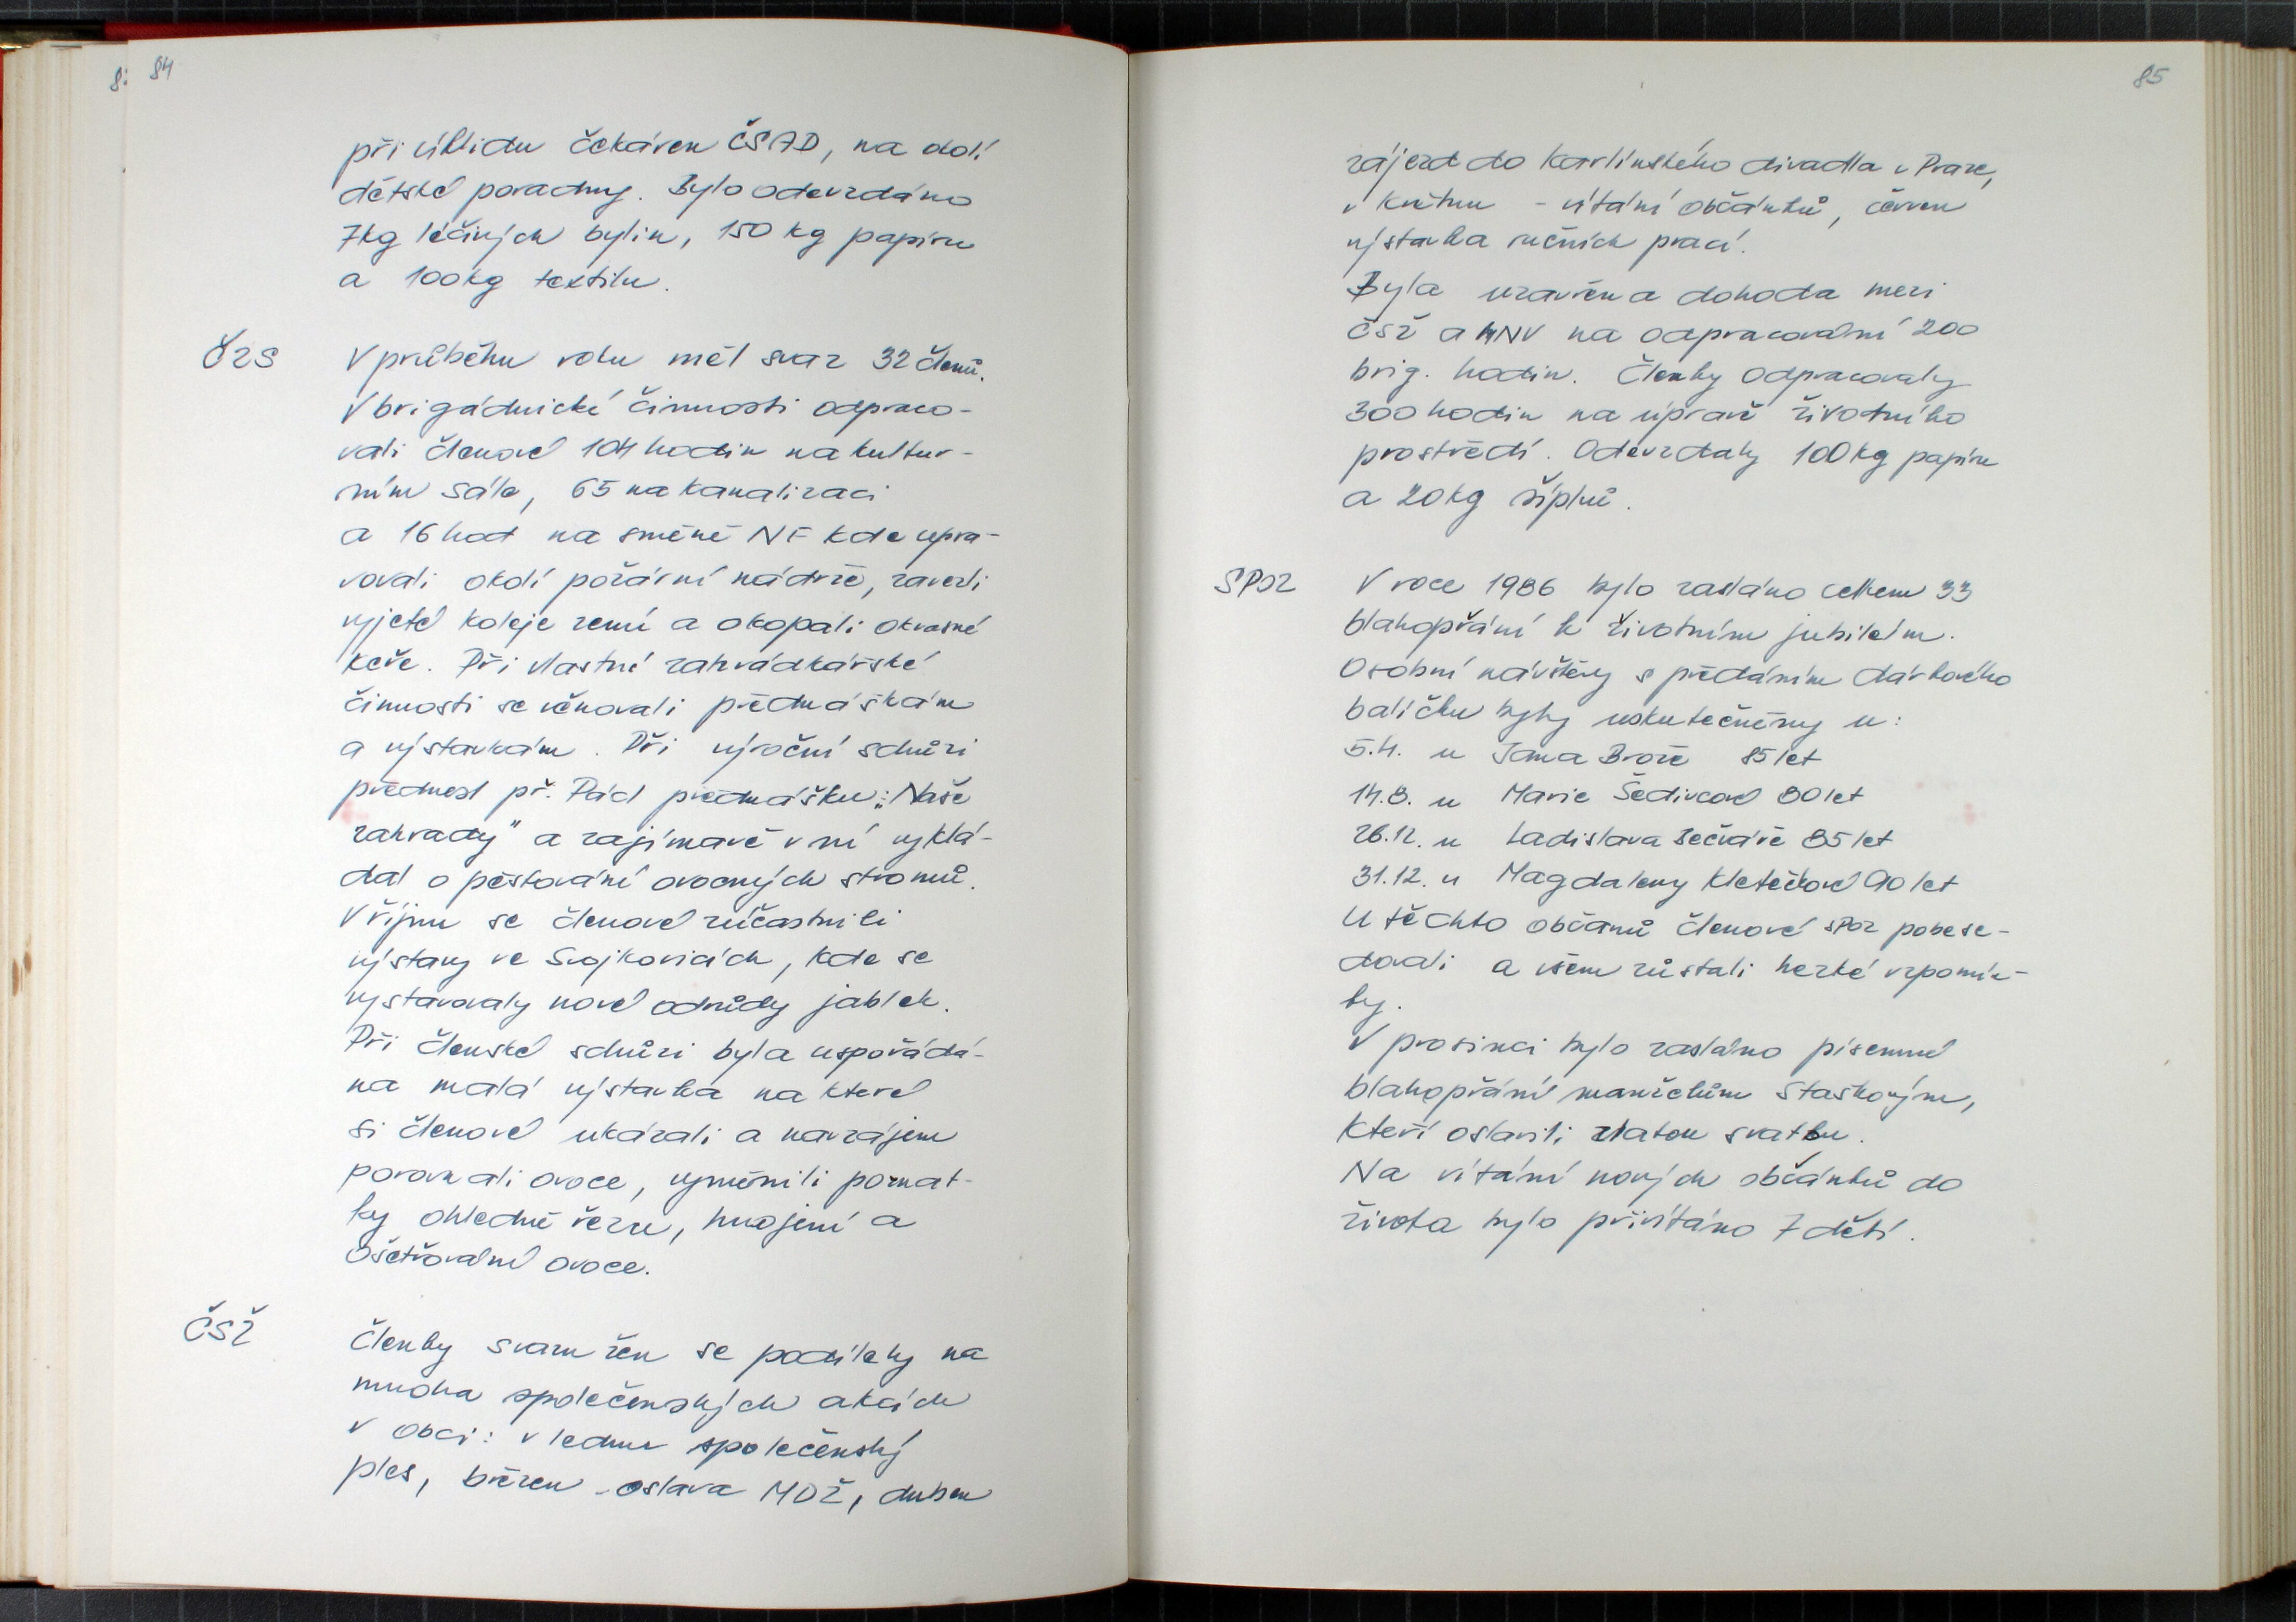 84
při úklidu čekáren ČSAD, na dolí
dětské poradny. Bylo odevzdáno
7kg léčivých bylin, 150 kg papíru
a 100kg textilu.
ČZS
V průběhu roku měl svaz 32 členů.
V brigádnické činnosti odpraco-
vali členové 104 hodin na kultur-
ním sále, 65 na kanalizaci
a 16 hod na směně NF kde upra-
vovali okolí požární nádrže, zavezli
vyjeté koleje zemí a okopali okrasné
keře. Při vlastní zahrádkářské
činnosti se věnovali přednáškám
a výstavkám. Při výroční schůzi
přednesl př. Pácl přednášku: „Naše
zahrady" a zajímavě v ní vyklá-
dal o pěstování ovocných stromů.
V říjnu se členové zúčastnili
výstavy ve Svojkovicích, kde se
vystavovaly nové odrůdy jablek.
Při členské schůzi byla uspořádá-
na malá výstavka na které
si členové ukázali a navzájem
porovnali ovoce, vyměnili poznat-
ky ohledně řezu, hnojení a
ošetřování ovoce.
ČSŽ
Členky svazu žen se podílely na
mnoha společenských akcích
v obci: v lednu společenský
ples, březen - oslava MDŽ, duben
85
zájezd do Karlínského divadla v Praze,
v květnu - vítání občánků, červen
výstavka ručních prací.
Byla uzavřena dohoda mezi
ČSŽ a MNV na odpracování 200
brig. hodin. Členky odpracovaly
300 hodin na úpravě životního
prostředí. Odevzdaly 100kg papíru
a 20kg šípků.
SPOZ
V roce 1986 bylo zasláno celkem 33
blahopřání k životním jubileím.
Osobní návštěvy s předáním dárkového
balíčku byly uskutečněny u:
5.4. u Jana Brože 85 let
14.8. u Marie Šedivcové 80 let
26.12. u Ladislava Bečváře 85 let
31.12. u Magdaleny Kletečkové 90 let
U těchto občanů členové SPOZ pobese-
dovali a všem zůstali hezké vzpomín-
ky.
V prosinci bylo zasláno písemné
blahopřání manželům Staškovým,
kteří oslavili zlatou svatbu.
Na vítání nových občánků do
života bylo přivítáno 7 dětí.